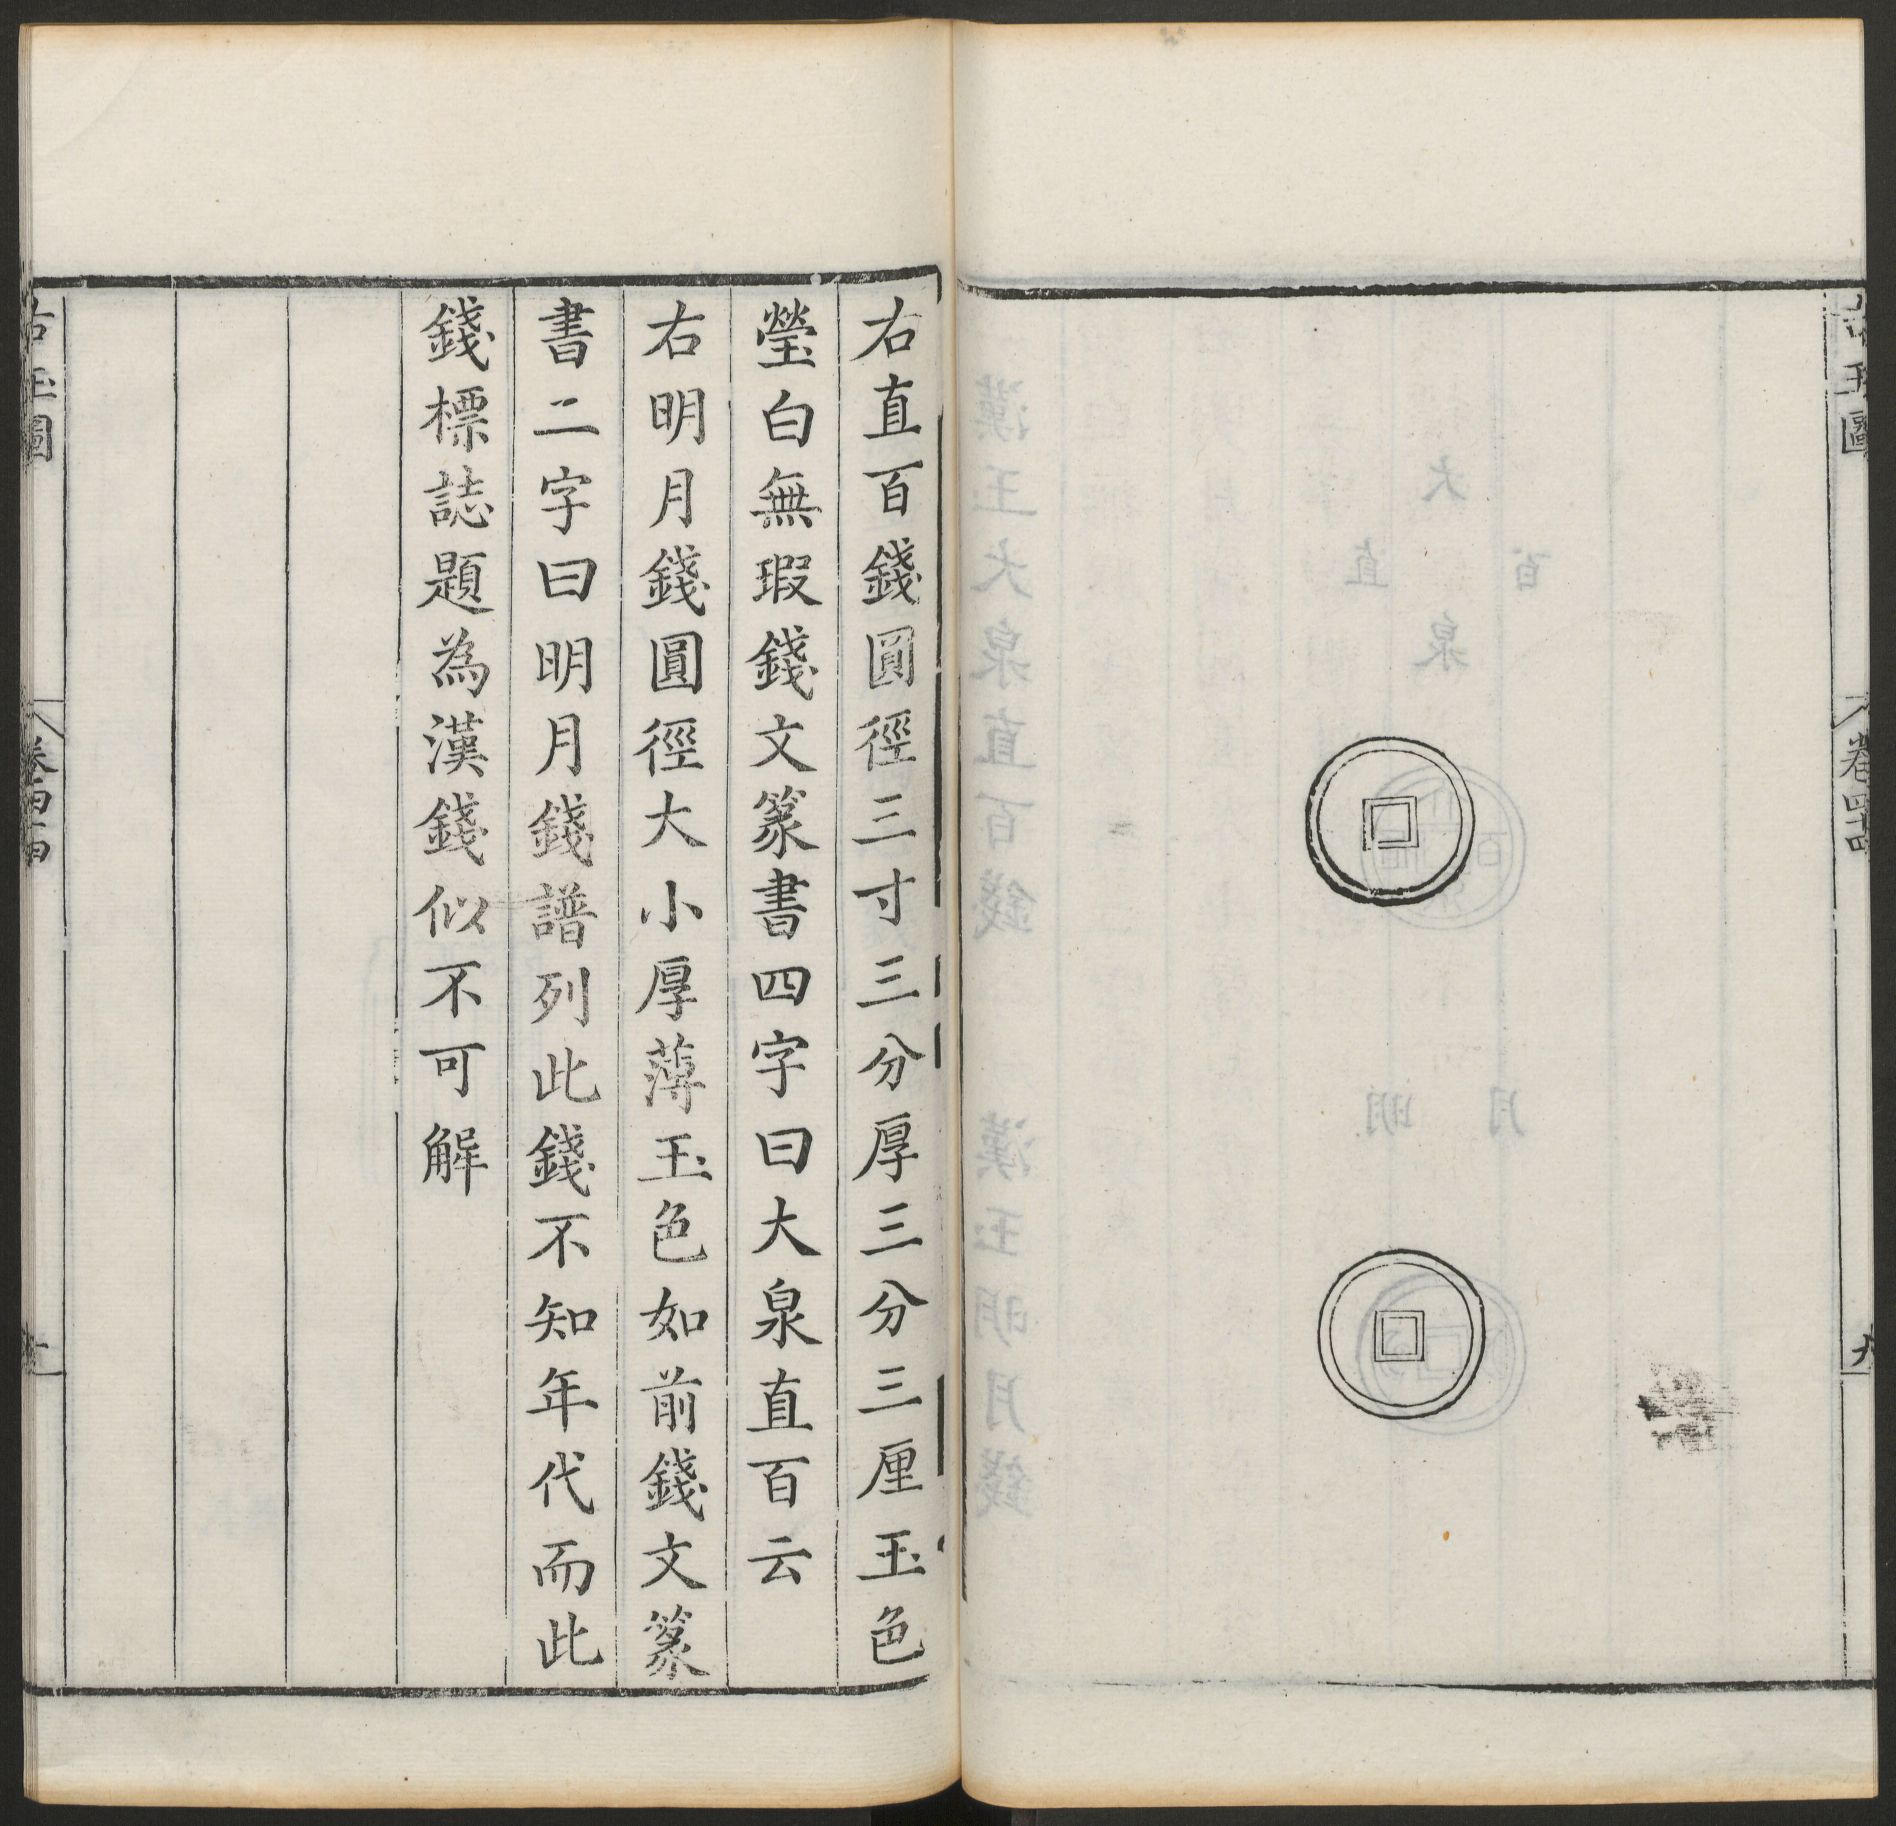 古玉圖
卷四十四
九
右直百錢圓徑三寸三分厚三分三厘玉色
瑩白無瑕錢文篆書四字曰大泉直百云
右明月錢圓徑大小厚薄玉色如前錢文篆
書二字曰明月錢譜列此錢不知年代而此
錢標誌題為漢錢似不可解
古玉圖